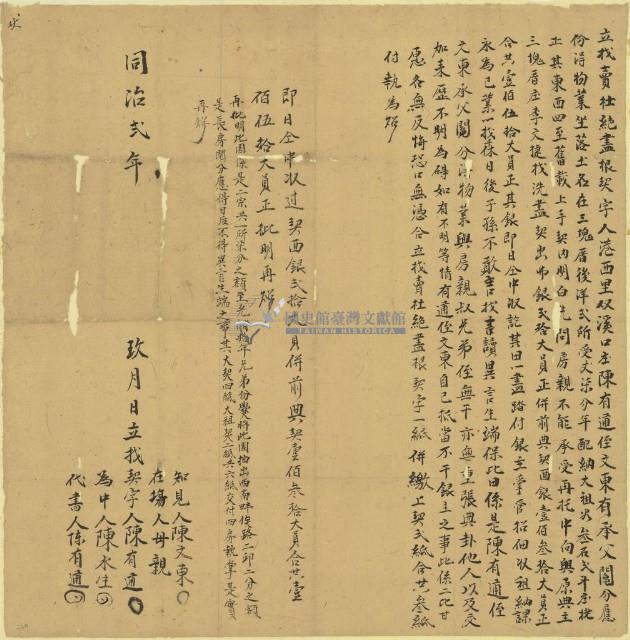 立找賣杜絕盡根契字人港西里双溪口庄陳有通侄文東有承父鬮分應
份淂物業坐落土名在三塊厝後洋
正其東西四至舊載上手契內明白先問房親不能承受再托中向與原典主
三塊厝庄李文提找洗盡契出佛銀弍拾大員正併前典契面銀壹佰叁拾大員正
合共壹佰伍拾大員正其銀即日仝中收訖其田一盡踏付銀主掌管招佃收租納課
永為己業一找葢日後子孫不敢言找言贖異言生端保此田係是陳有通侄
文東承父鬮分淂物業與房親叔兄弟侄無干亦無重張典卦他人以及交
如來歷不明為碍如有不明等情有通侄文東自己抵當不干銀主之事此係二比甘
愿各無反悔恐口無憑合立找賣杜絕盡根契字一紙併繳上契弍紙合共叁紙
付執為炤
即日仝中收过契面銀弍拾大員併前典契壹佰叁拾大員合共壹
佰伍拾大員正批明再炤
再批明此園係是二宗共一所
是長房鬮分應得日后不得異言生端之事其大契四紙大租契二紙共六紙交付四房執掌是實
再炤
同治弍年
玖月 日立找契字人陳有通
知見人陳文東
在塲人母親
為中人陳水生
代書人陳有通
國史館臺灣文獻館
TAIWAN HISTORICA